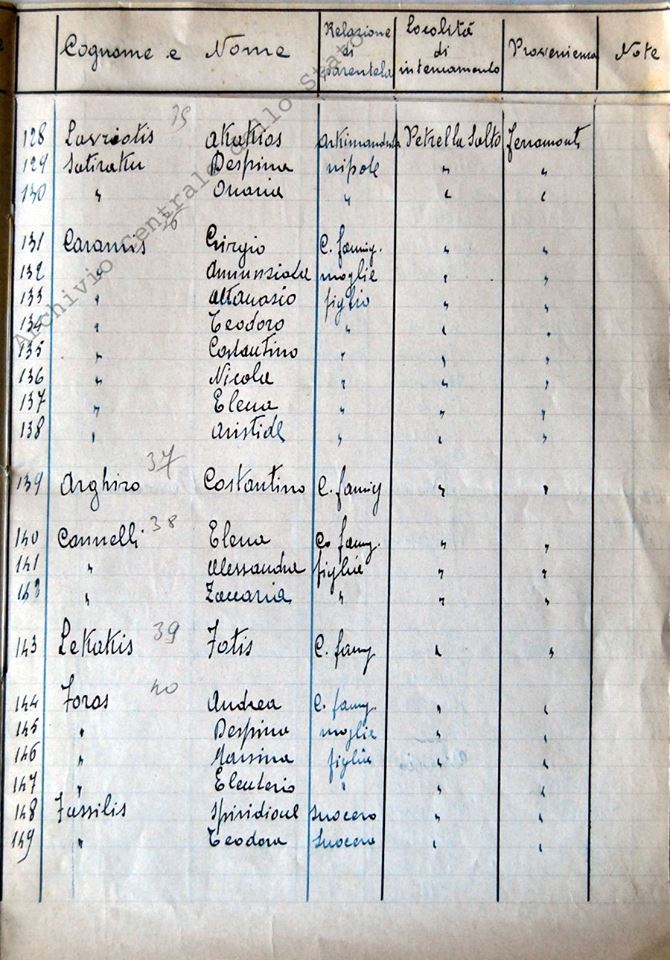 Cognome e Nome Relazione di parentela Località di internamento Provenienza Note
35
128 Lavriotis Akakios Arkimandrita Petrella Salto Ferramonti
129 Sotiraku Despina nipote " "
130 " " " "
36
131 Caramis Giorgio C. famig. " "
132 " Annunziata moglie " "
133 " Attanasio figlio " "
134 " Teodoro " " "
135 " Costantino " " "
136 " Nicola " " "
137 " Elena " " "
138 " Aristide " " "
37
139 Arghiro Costantino C. famig " "
140 Cannelli 38 Elena C. famig. " "
141 " Alessandra figlia " "
142 " Zaccaria " " "
143 Lekakis 39 Fotis C. famig " "
40
144 Foras Andrea C. famig. " "
145 " Despina moglie " "
146 " Marsina figlia " "
147 " Eleuterio " " "
148 Fassilis Spiridione suocero " "
149 " Teodora suocera " "
Archivio Centrale dello Stato